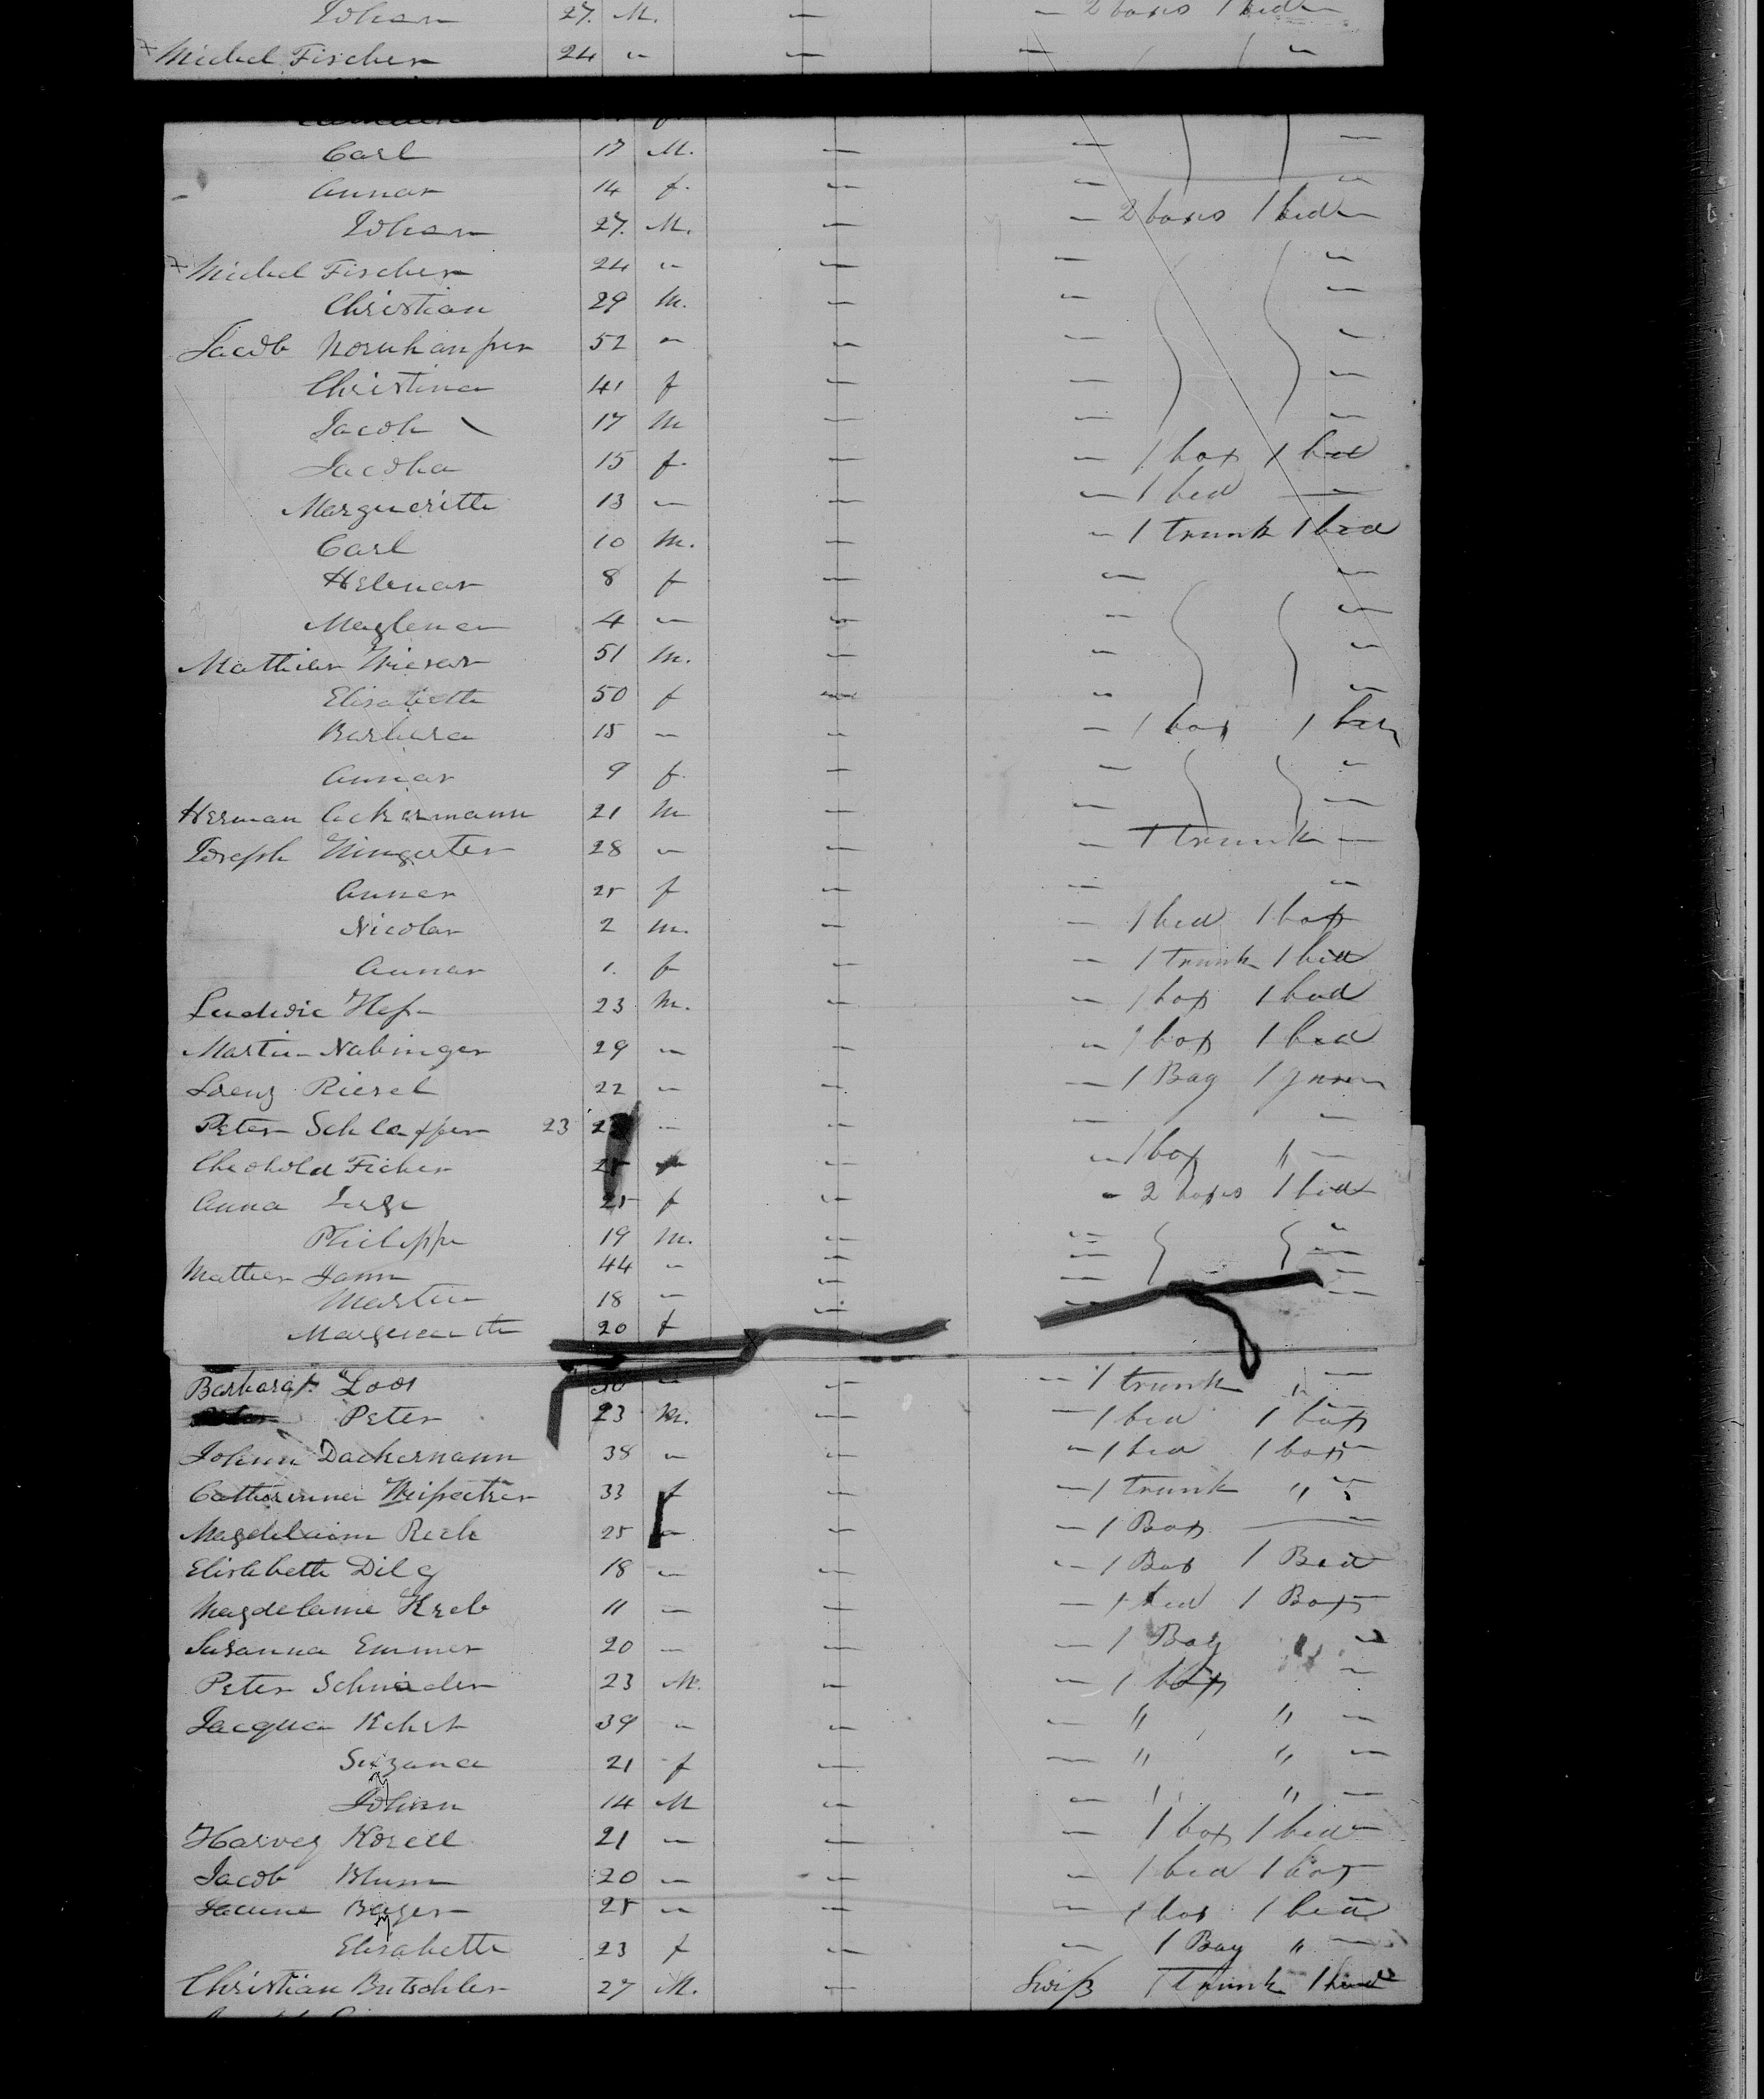 Johan 27. M. — — 2 boxes 1 bed —
Michel Fischer 24 " — — —
Carl 17 M. — — —
Annar 14 f. — — —
Johan 27. M. — — 2 boxes 1 bed —
Michel Fischer 24 " — — —
Christian 29 M. — — —
Jacob 52 " — — —
Christina 41 f — — —
Jacob 17 M — — —
Jacoba 15 f. — — 1 box 1 bed
Margueritte 13 — — — 1 bed —
Carl 10 M. — — 1 trunk 1 bed
Helenar 8 f — — —
Maglena 4 — — — —
Mathier 51 M. — — —
Elisabette 50 f — — —
Barbara 15 — — — 1 box 1
Annar 9 f. — — —
Herman Ackermann 21 M — — —
Joseph 28 — — — 1 trunk —
Annar 25 f — — —
Nicolar 2 M. — — 1 bed 1 box
Annar 1. f — — 1 trunk 1 bed
Ludwic Hess 23 M. — — 1 box 1 bed
Martin Nabinger 29 — — — 1 box 1 bed
Lorenz Riesel 22 — — — 1 Bag 1
Peter 23 — — — —
Ficher — — 1 box " —
Anna 25 f — — 2 boxes 1 bed
Philippe 19 M. — — —
Mathier 44 — — — —
Martin 18 — — — —
20 f — — —
Barbara Loos — — — 1 trunk " —
Peter 23 M. — — 1 bed 1 box
Johann Dackermann 38 — — — 1 bed 1 box —
Catharinna 33 f — — 1 trunk "
25 — — — 1 Box —
Elisabette Dilg 18 — — — 1 Box 1 Bed
Magdelaine Kreb 11 — — — 1 bed 1 Box
Susanna Emmer 20 — — — 1 Bag " —
Peter Schnieder 23 M. — — 1 box —
39 — — — " " —
Suzana 21 f — — " " —
Johann 14 M — — " " —
Harvey Korell 21 — — — 1 box 1 bed —
Jacob Blum 20 — — — 1 bed 1 box
Bayer 25 — — — 1 box 1 bed
Elisabette 23 f — — 1 Bag " —
Christian Butschler 27 M. — Swiß 1 trunk 1 bed